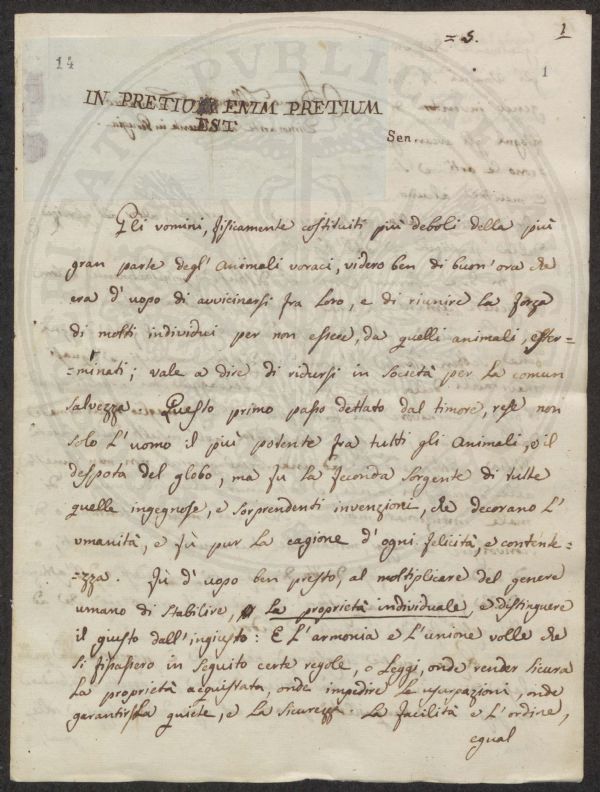 = 5.
1
14
1
IN PRETIO ENIM PRETIUM
EST
Sen.
Gli vomini, fisicamente costituiti più deboli della più
gran parte degl' Animali voraci, videro ben di buon' ora che
era d' uopo di avvicinarsi fra Loro, e di riunire la forza
di molti individui per non essere, da quelli animali, ester=
=minati; vale a dire di ridursi in Società per la comun
salvezza. Questo primo passo dettato dal timore, rese non
solo L' uomo il più potente fra tutti gli Animali, e il
despota del globo, ma fu la feconda sorgente di tutte
quelle ingegnose, e sorprendenti invenzioni, che decorano L'
vmanità, e fù pur La cagione d' ogni felicità, e contente=
=zza. Fù d' uopo ben presto, al moltiplicare del genere
umano di stabilire, La proprietà individuale, e distinguere
il giusto dall' ingiusto: E L' armonia e L' unione volle che
si fissassero in seguito certe regole, o Leggi, onde render sicura
La proprietà acquistata, onde impedire Le usurpazioni, onde
garantirsi La quiete, e La sicurezza. La facilità e L' ordine,
egual